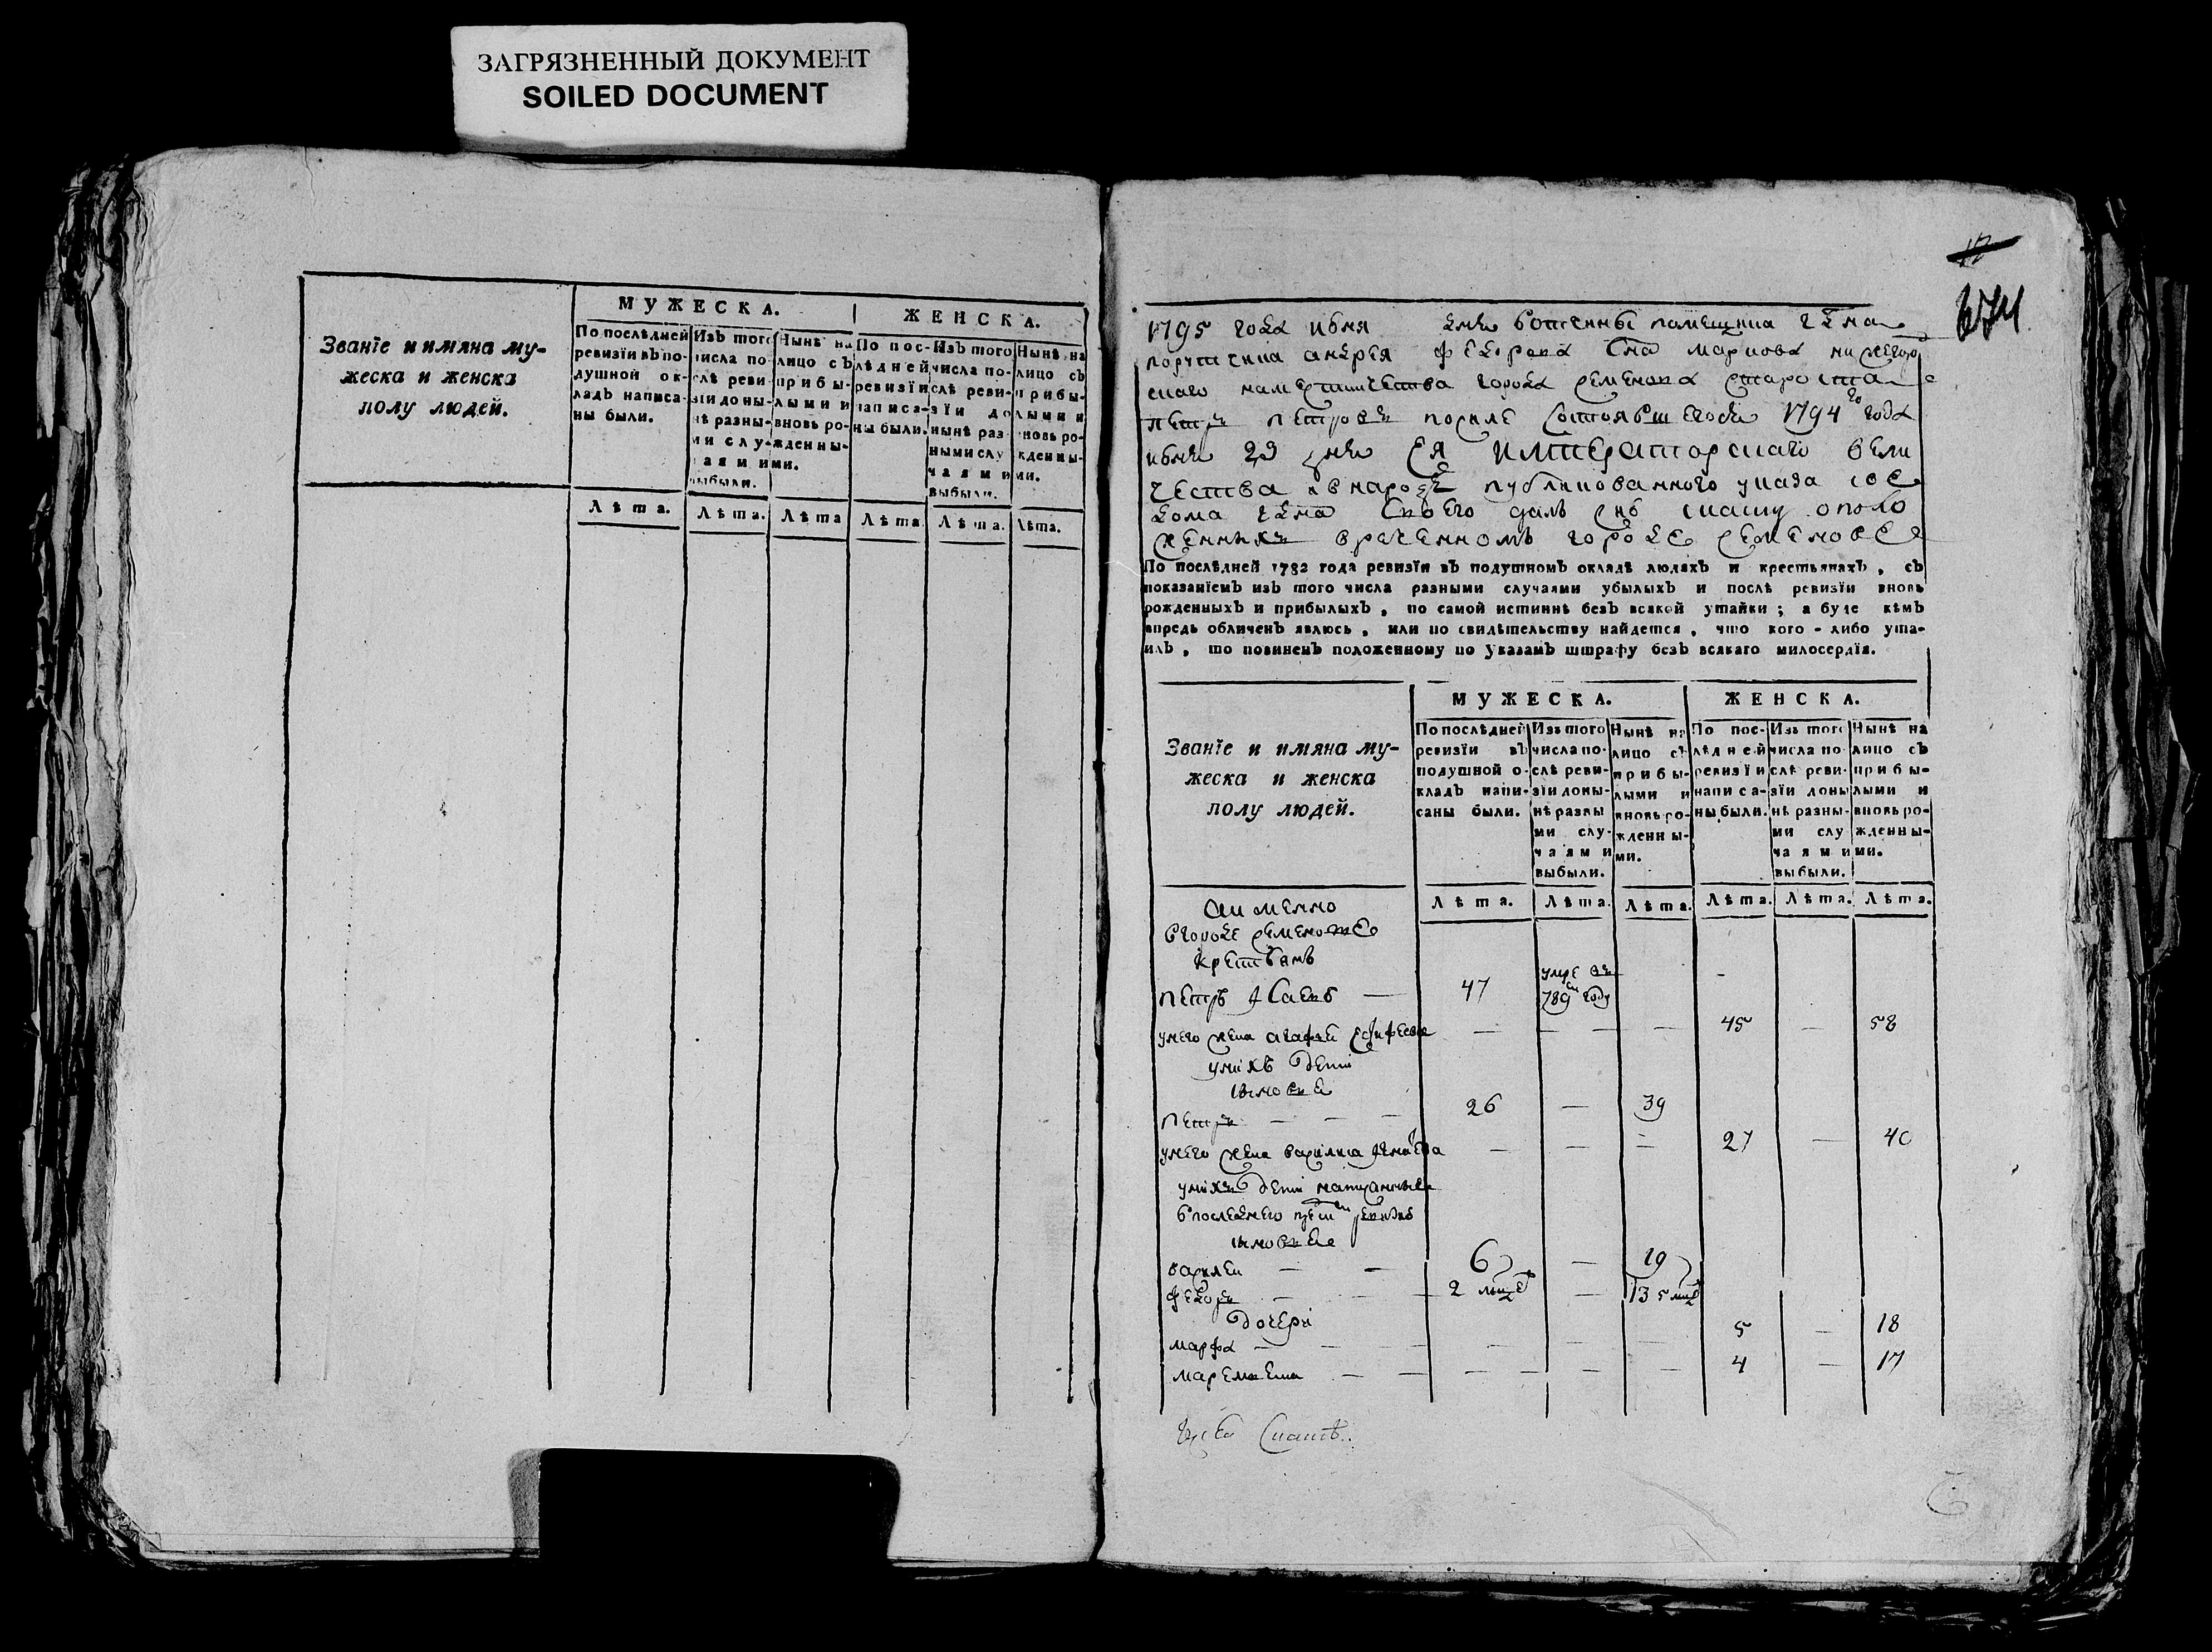 ЗАГРЯЗНЕННЫЙ ДОКУМЕНТ
SOILED DOCUMENT
Званїе и имяна му-
жеска и женска
полу людей.
МУЖЕСКА.
ЖЕНСКА.
По послѣдней ревизїи въ по-душной ок-ладъ написа-ны были.
Изъ того числа по-слѣ реви-зїи до ны-нѣ разны-ми слу-чаями выбыли.
Нынѣ на лицо съ прибы-лыми и вновь ро-жденны-ми.
По пос-лѣдней ревизїи написа-ны были.
Изъ того числа по-слѣ реви-зїи до нынѣ раз-ными слу-чаями выбыли.
Нынѣ на лицо съ прибы-лыми и вновь ро-жденны-ми.
Лѣта. Лѣта. Лѣта Лѣта. Лѣта. Лѣта.
674
1795 года июня дня вотчины помещика
порутчика андрея федорова сна маркова нижегоро
скаго наместничества города семенова староста
петръ петровъ после состоявшегося 1794го года
июня 23 дня ея императорскаго вели
чества в народъ публикованного указа
своего далъ сию скаску о поло
женныхъ в реченномъ городе семенове
По послѣдней 1782 года ревизїи въ подушномъ окладѣ людяхъ и крестьянахъ, съ
показанїемъ изъ того числа разными случаями убылыхъ и послѣ ревизїи вновь
рожденныхъ и прибылыхъ, по самой истиннѣ безъ всякой утайки; а буде кѣмъ
впредь обличенъ явлюсь, или по свидѣтельству найдется, что кого-либо ута-
илъ, то повиненъ положенному по указамъ штрафу безъ всякаго милосердїя.
Званїе и имяна му-
жеска и женска
полу людей.
МУЖЕСКА.
ЖЕНСКА.
По послѣдней ревизїи въ подушной о-кладъ напи-саны были.
Изъ того числа по-слѣ реви-зїи до ны-нѣ разны ми слу-чаями выбыли.
Нынѣ на лицо съ прибы-лыми и вновь ро-жденны-ми.
По пос-лѣдней ревизїи написа-ны были.
Изъ того числа по-слѣ реви-зїи до ны нѣ разны-ми слу чаями выбыли.
Нынѣ на лицо съ прибы-лыми и вновь ро-жденны-ми.
Лѣта. Лѣта. Лѣта. Лѣта. Лѣта. Лѣта.
а имянно
в городе семенове
крестьянъ
петръ — 47 умре въ 789м году
у него жена агафья — — — 45 — 58
у нихъ дети
сыновья
петръ — — — 26 — 39
у него жена василиса — — — 27 — 40
у нихъ дети написанные
в последнею пред сим ревизию
сыновья
василей — — 6 — 19
федоръ — — — 2 мцъ — 13 5 мцъ
дочери
марфа — — — — — — 5 — 18
маремьяна — — — — — — 4 — 17